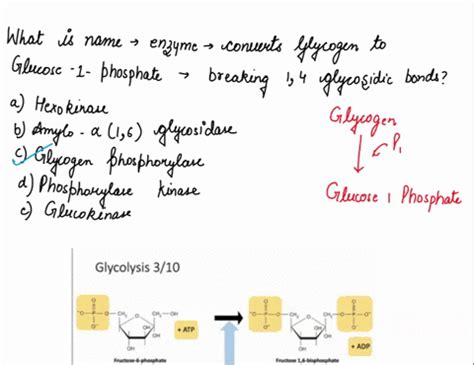 What is name → enzyme → converts Glycogen to
Glucose -1- phosphate → breaking 1,4 glycosidic bonds?
a) Hexokinase
b) Amylo - α (1,6) glycosidase
c) Glycogen phosphorylase
d) Phosphorylase kinase
e) Glucokinase
Glycogen
P₁
Glucose 1 Phosphate
Glycolysis 3/10
O
O⁻ P O CH₂ O CH₂ OH
O⁻
OH
OH
OH
+ ATP
Fructose-6-phosphate
O
O⁻ P O CH₂ O CH₂ O P O⁻
O⁻
OH
OH
OH
+ ADP
Fructose 1,6-bisphosphate